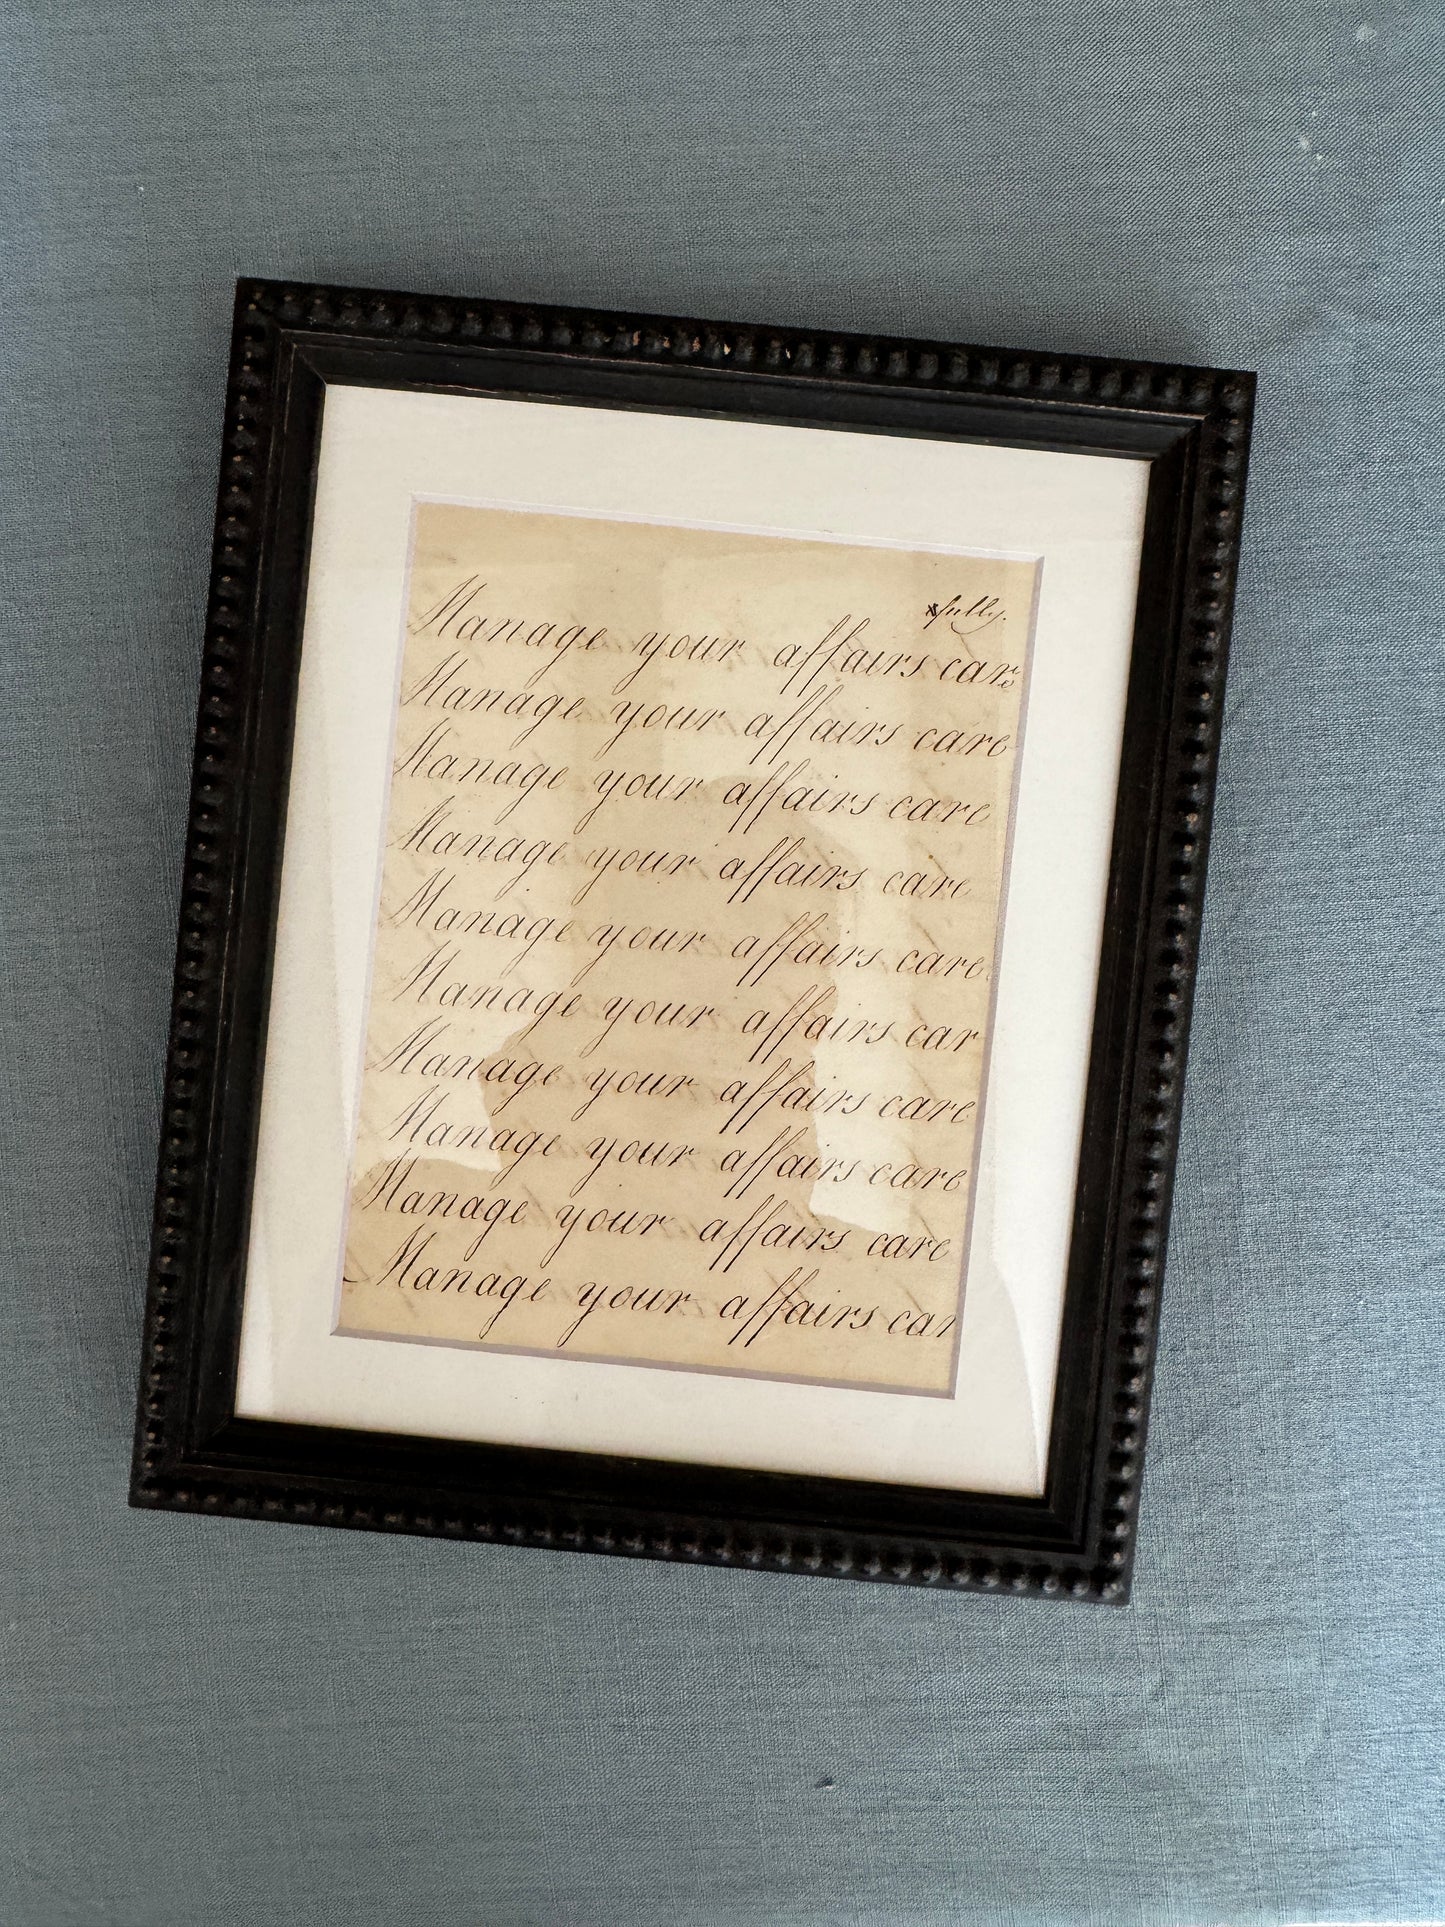 xfully.
Manage your affairs care
Manage your affairs care
Manage your affairs care
Manage your affairs care
Manage your affairs care
Manage your affairs car
Manage your affairs care
Manage your affairs care
Manage your affairs care
Manage your affairs car